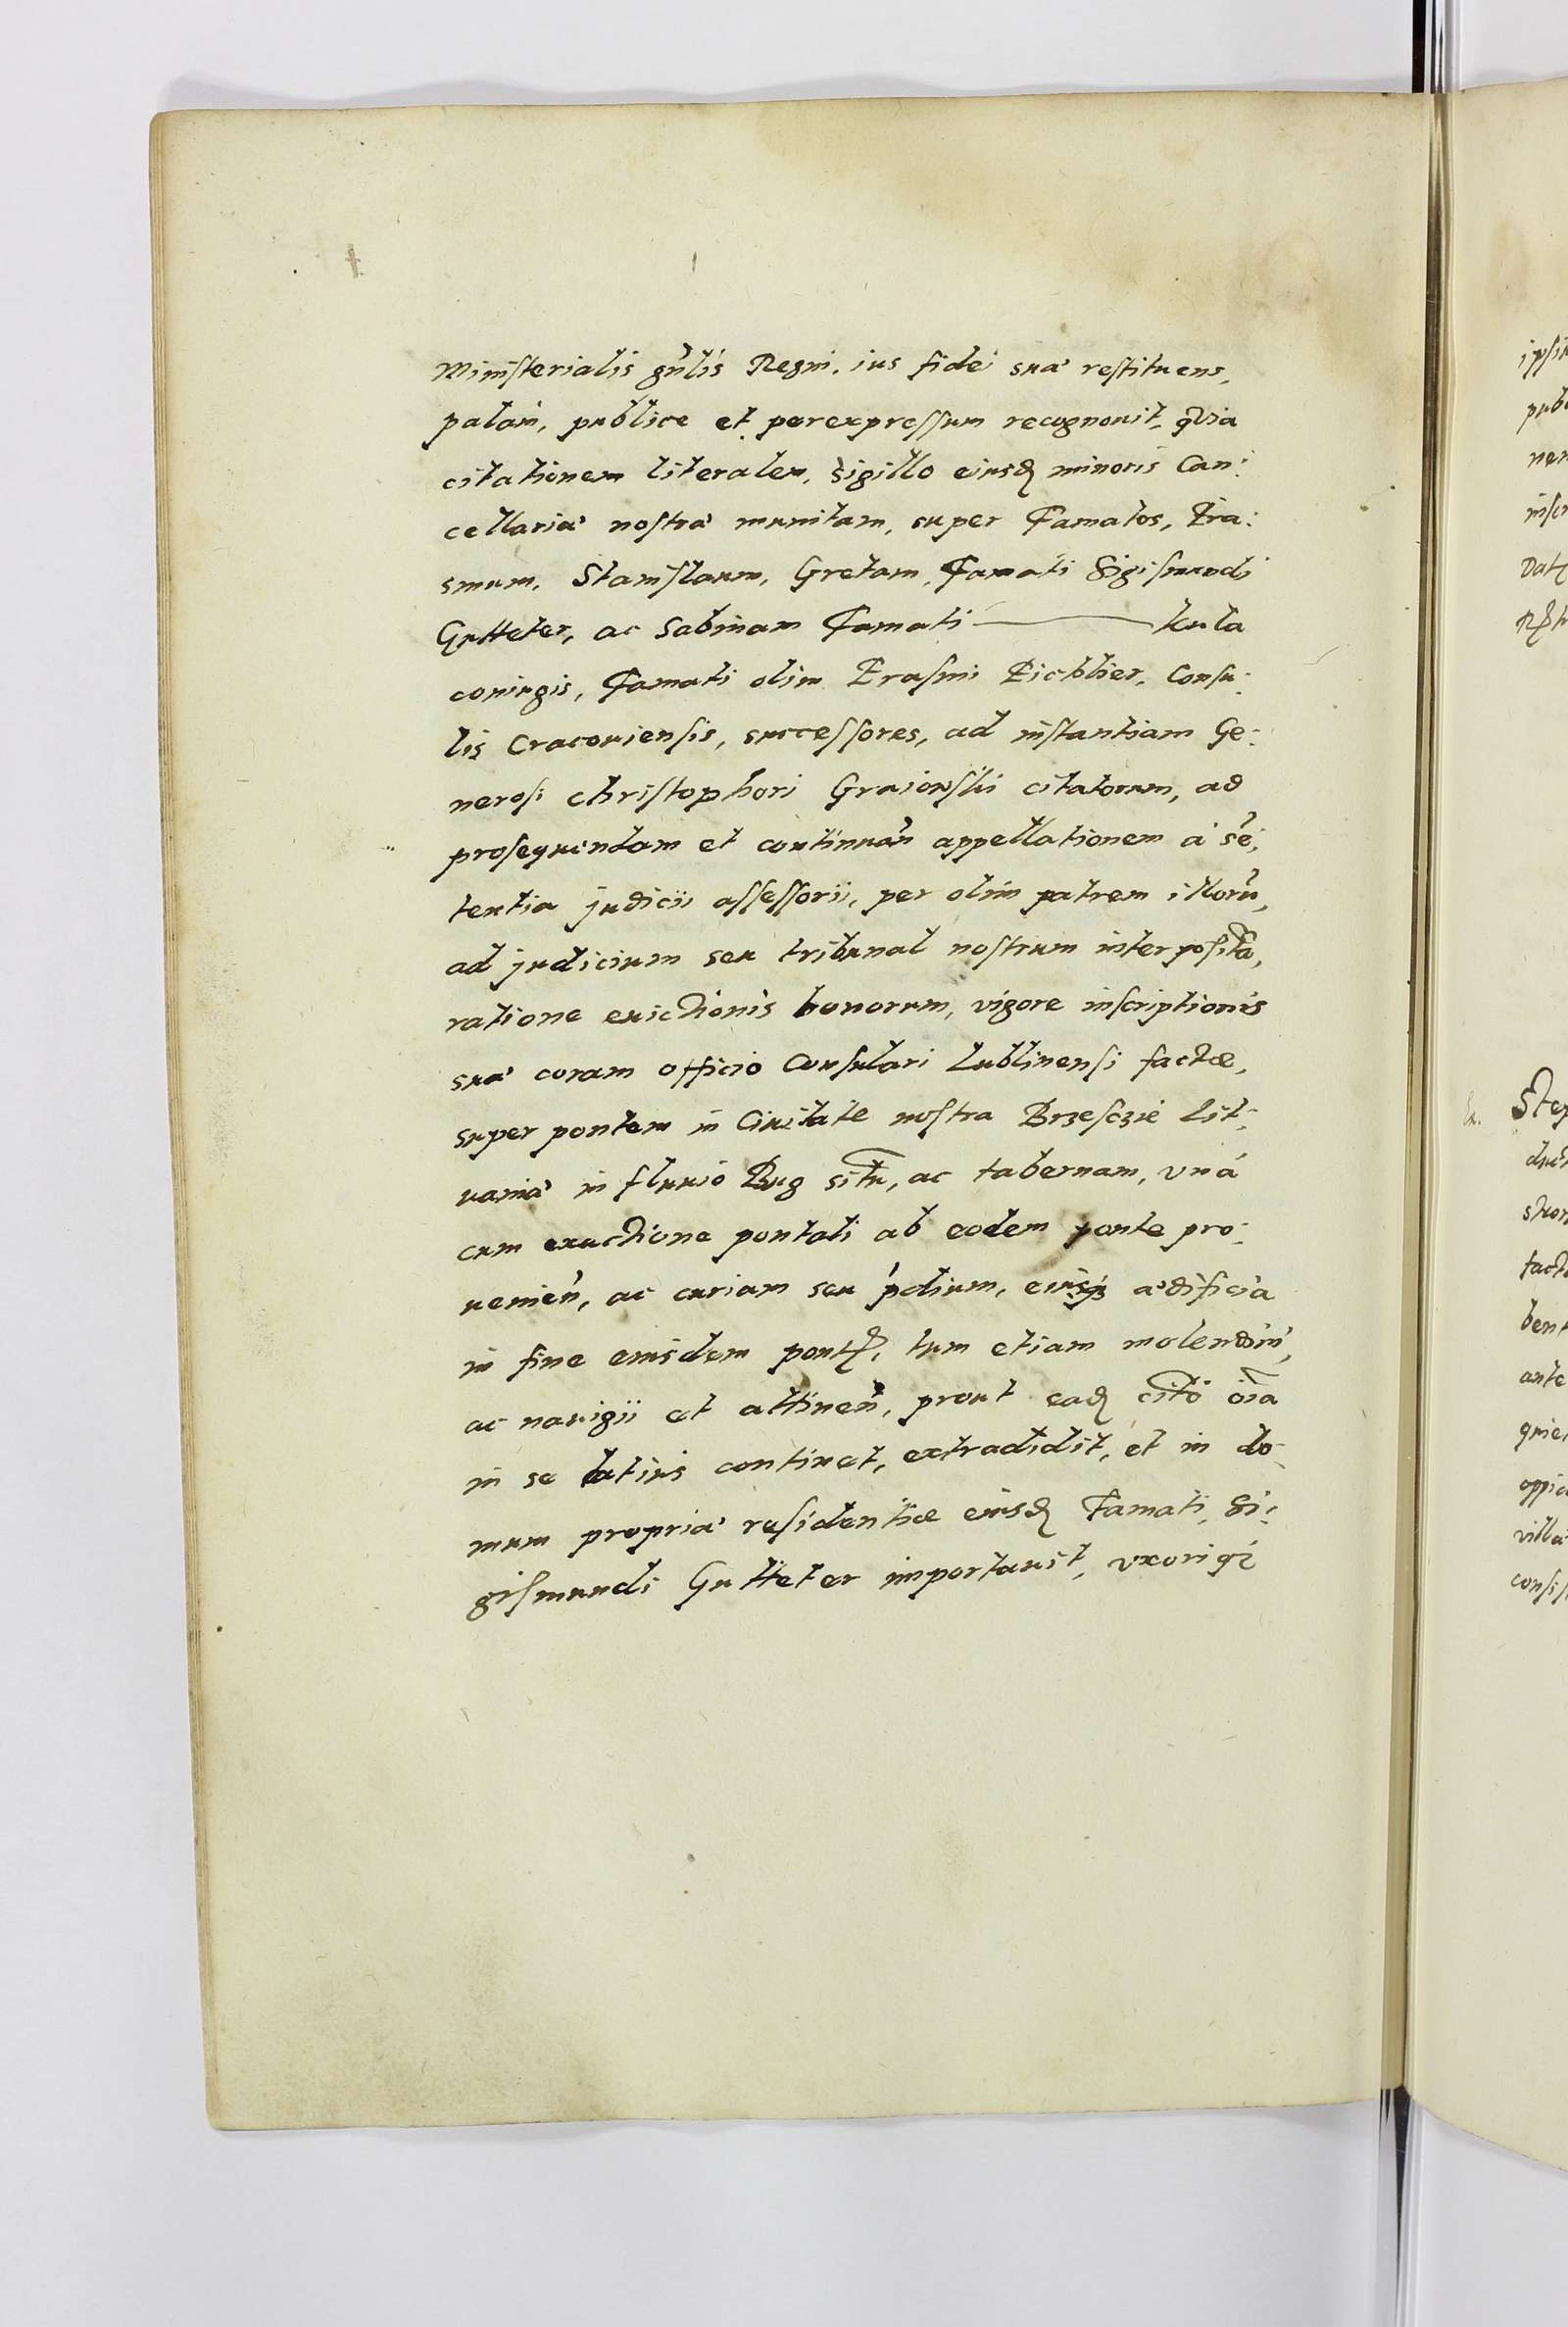 Ministerialis gn̄lis Regni, ius fidei suæ restituens,
palam, publice et per expressum recognouit, quia
citationem literalem, sigillo eiusdꝫ minoris Can:
cellariæ nostræ munitam, super Famatos, Era:
smum, Stanislaum, Gretam, Famati Sigismundi
Gutteter, ac Sabinam Famati ——— kula
coniugis, Famati olim Erasmi Eichlier, Consu:
lis Cracouiensis, successores, ad instantiam Ge:
nerosi Christophori Graiowski citatorum, ad
prosequendam et continuan̄ appellationem à sē:
tentia judicii assessorii, per olim patrem illorū,
ad judicium seu tribunal nostrum interpositā,
ratione euictionis bonorum, vigore inscriptionis
suæ coram officio Consulari Lublinensi factæ,
super pontem in Ciuitate nostra Brzesczie Lit:
uaniæ in fluuio Bug sitū, ac tabernam, vná
cum exactione pontali ab eodem ponte pro:
uenien̄, ac curiam seu p̄dium, eiusqꝫ ædificia
in fine eiusdem pontꝭ, tum etiam molendin̄,
ac nauigii et attinen̄, prout eadꝫ cit̄o oīa
in se latius continet, extradidit, et in do:
mum propriæ residentiæ eiusdꝫ Famati, Si:
gismundi Gutteter importauit, vxorique